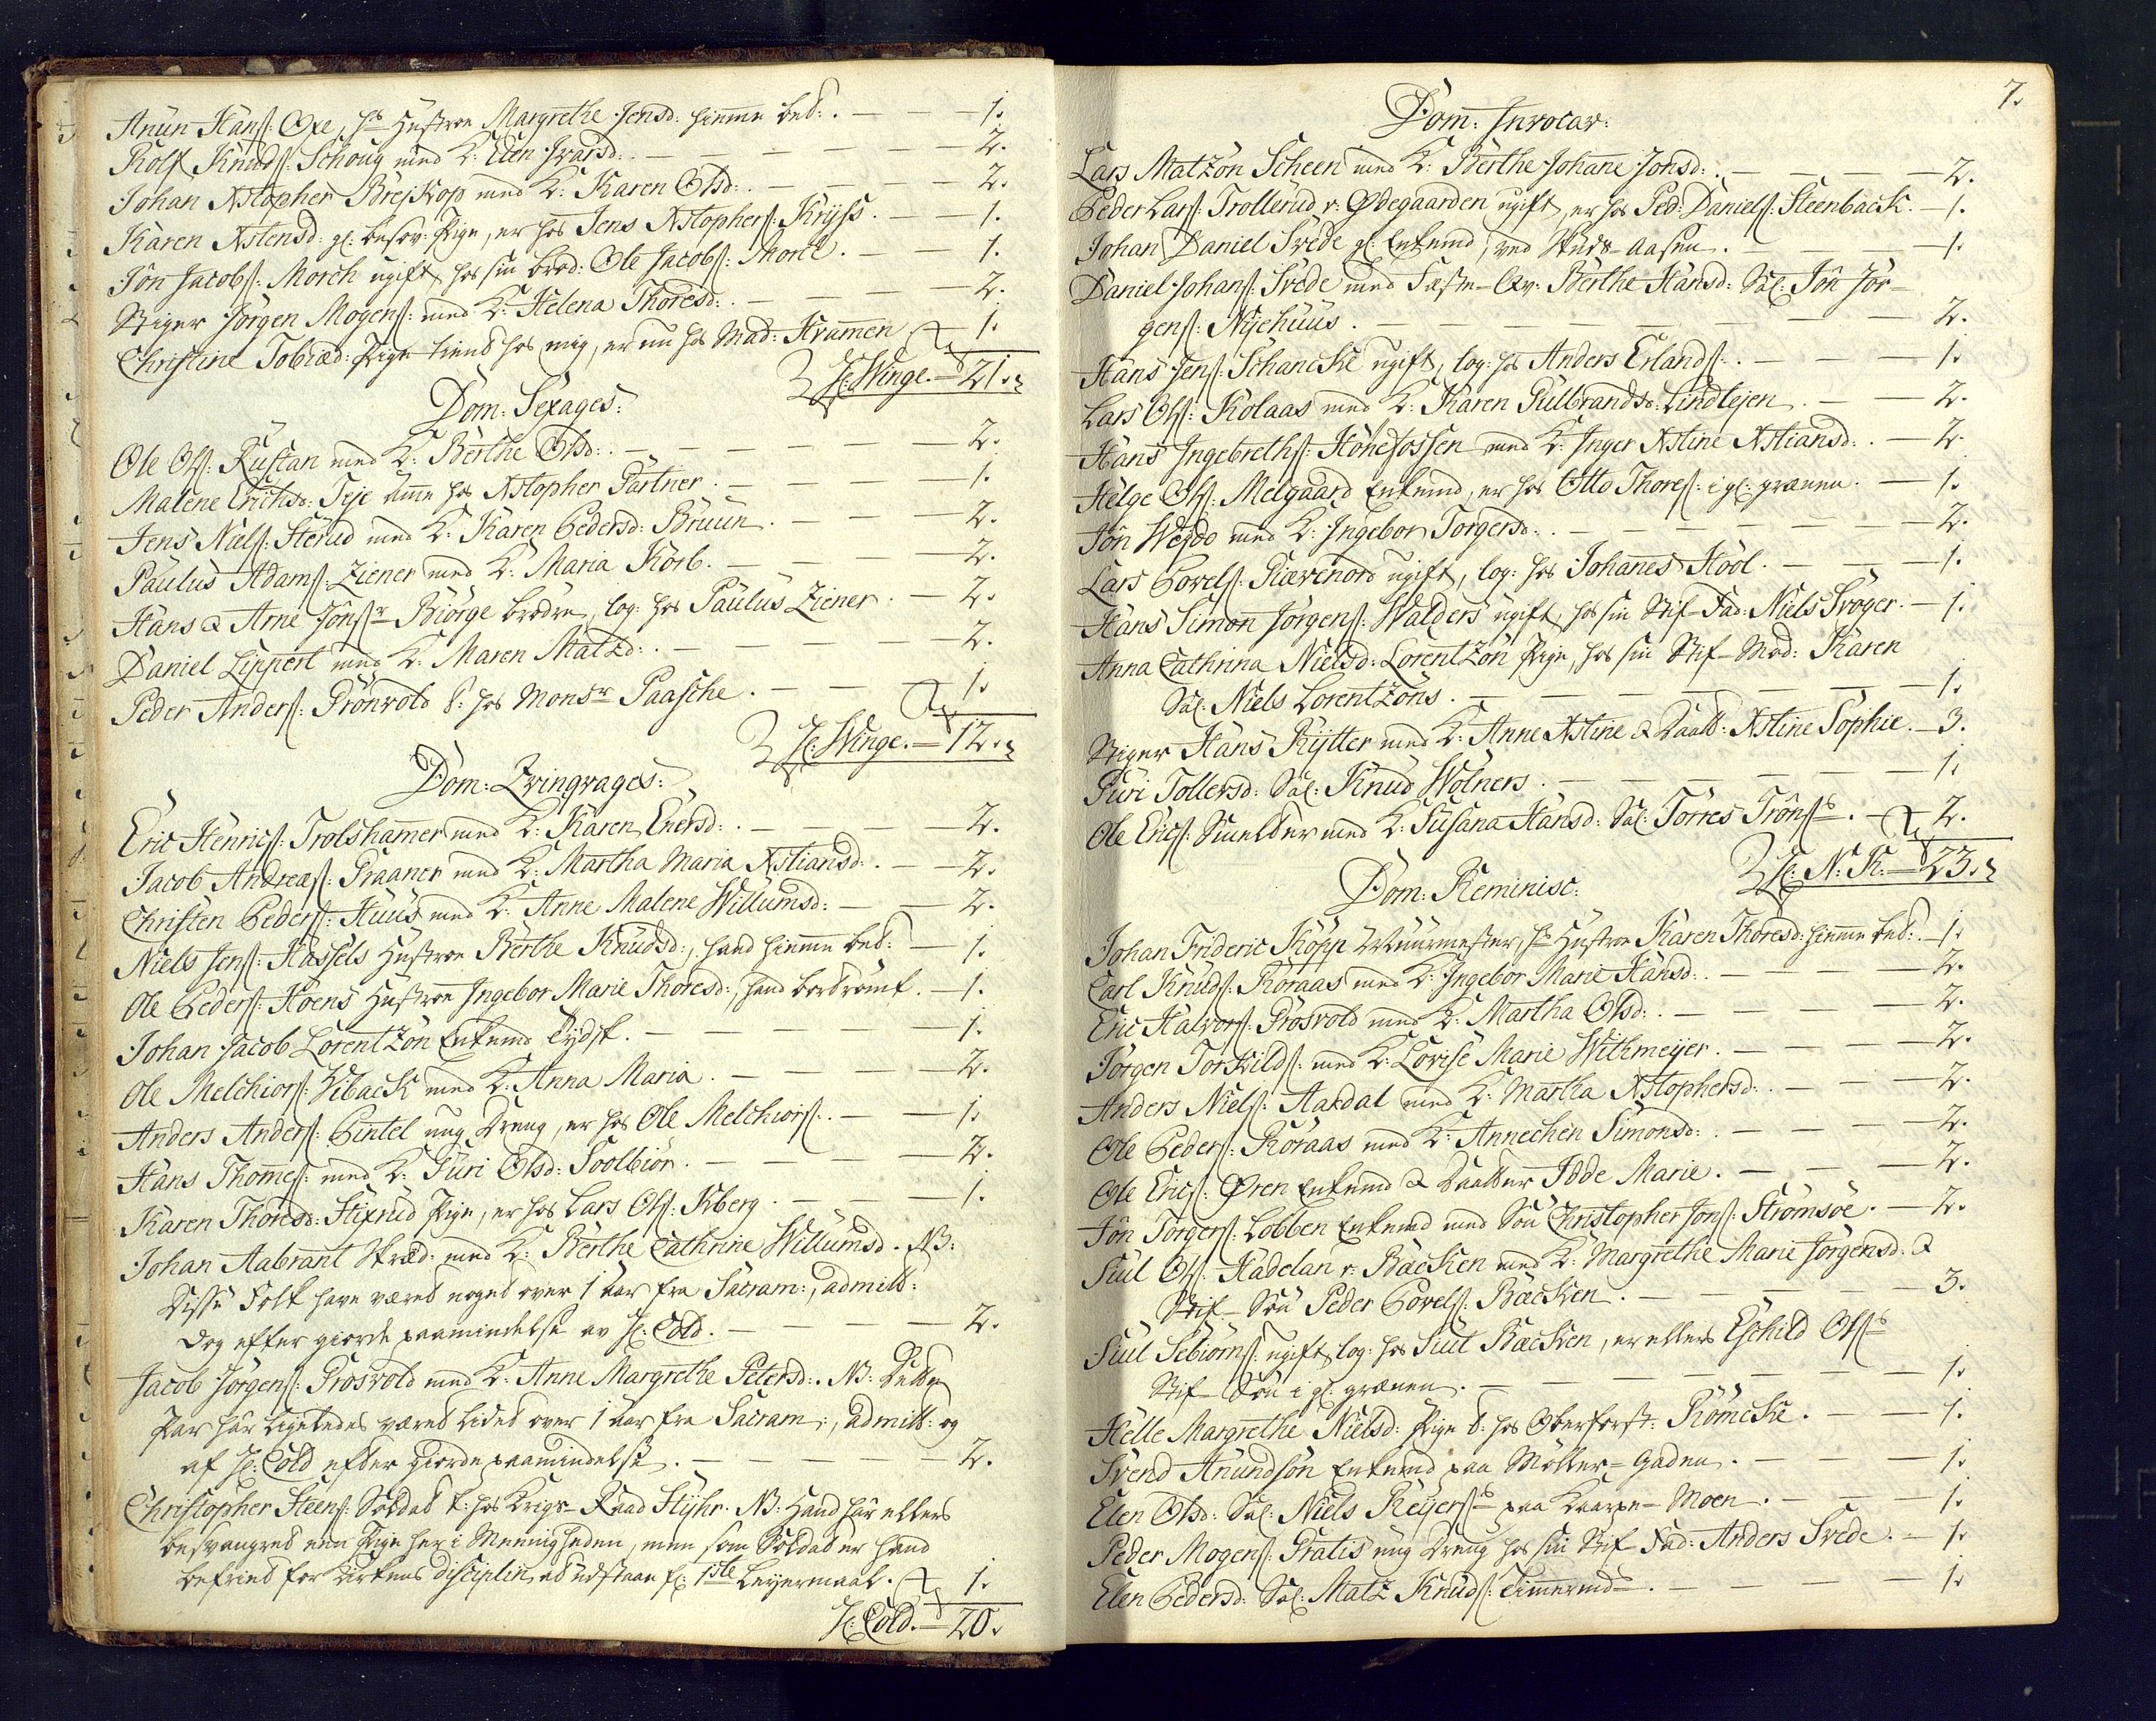 Anun Hansſ: Oxe, hs Hustroe Margrethe Jensd: hiemme ber:. — — 1.
Rolf Knudſ: Schoug med K: Elen Ivarsd:. — — — — 2.
Johan Xstopher Brejkop med K: Karen Olsd:. — — — 2.
Karen Xstensd: gl: besov: Pige, er hos Jens Xstophersſ: Kryss. — — 1.
Jon Jacobſ: Morch ugift, hos sin brod: Ole Jacobſ: Morch. — — 1.
Stiger Jörgen Mogensſ: med K: Helena Thoresd:. — — — 2.
Christine Tobiæd: Pige tiend hos mig, er nu hos Mad: Kramen — 1.
H: Winge. — 21.
Dom: Sexages:
Ole Olsſ: Rustan med K: Berthe Olsd:. — — — — 2.
Malene Erichsd: Teje Amme hos Xstopher Partner. — — — 1.
Jens Nielsſ: Sterud med K: Karen Pedersd: Bruun. — — — 2.
Paulus Adamsſ: Ziener med K: Maria Korb. — — — 2.
Hans & Arne Jonsſr Biörge brödre, log: hos Paulus Ziener. — 2.
Daniel Lippert med K: Maren Matzd:. — — — — 2.
Peder Andersſ: Grönvold t: hos Monsr Paasche. — — — 1.
H: Winge. — 12.
Dom: Qvinqvages:
Eric Henricſ: Trolshamer med K: Karen Enersd:. — — — 2.
Jacob Andreæſ: Graaner med K: Martha Maria Xstiansd:. — — 2.
Christen Pedersſ: Huus med K: Anne Malene Willumsd: — — 2.
Niels Jensſ: Hassels Hustroe Berthe Knudsd:, hand hiemme ber: — 1.
Ole Pedersſ: Hoens Hustroe Ingebor Marie Thoresd:, hand bortrömt. — 1.
Johan Jacob Lorentzön Enkemd Tydsk. — — — — 1.
Ole Melchiorſ: Viback med K: Anna Maria. — — — — 2.
Anders Andersſ: Pintel ung Dreng, er hos Ole Melchiorſ:. — — 1.
Hans Thomesſ: med K: Guri Olsd: Soolbiör. — — — — 2.
Karen Thoresd: Stixrud Pige, er hos Lars Olsſ: Kberg. — — — 1.
Johan Aabrant Skræd: med K: Berthe Cathrine Willumsd. NB:
Disse Folk have været noget over 1 Aar fra Sacram:, admitt:
dog efter giorde paamindelse av H: Cold. — — — — 2.
Jacob Jörgensſ: Grosvold med K: Anne Margrethe Petersd:. NB: Dette
Par har ligeledes været lidet over 1 Aar fra Sacram:, admitt: og
af H: Cold efter giorde paamindelse. — — — — 2.
Christopher Steensſ: Soldat t: hos Krigs-Raad Styhr. NB: Hand har ellers
besvangret een Pige her i Menigheden, men som Soldat er hand
befried for Kirkens disciplin at udstaae f: 1ste Leyermaal. — 1.
H: Cold. — 20.
7.
Dom: Invocav:
Lars Matzön Scheen med K: Berthe Johane Jonsd:. — — — 2.
Peder Larsſ: Trollerud v: Ödegaarden ugift, er hos Ped: Danielsſ: Steenback. — 1.
Johan Daniel Svede gl: Enkemd, ved Skuds-Aasen. — — — 1.
Daniel Johansſ: Svede med Fæste-Qv: Berthe Hansd: Sal: Jon Jör-
gensſ: Nyehuus. — — — — — — 2.
Hans Jensſ: Schancke ugift, log: hos Anders Erlandsſ:. — — 1.
Lars Olsſ: Kolaas med K: Karen Gulbrandsd: Lindtejen. — — 2.
Hans Ingebrethsſ: Hönefossen med K: Inger Xstine Xstiansd:. — 2.
Helge Olsſ: Melgaard Enkemd, er hos Otto Thoresſ: i gl: grænen. — 1.
Jon Wejdo med K: Ingebor Torgersd:. — — — — 2.
Lars Povelsſ: Kiævenord ugift, log: hos Johanes Hool. — — 1.
Hans Simon Jörgensſ: Walders ugift, hos sin Stif-Fad: Niels Svoger. — 1.
Anna Cathrina Nielsd: Lorentzön Pige, hos sin Stif-Mod: Karen
Sal: Niels Lorentzöns. — — — — — 1.
Stiger Hans Rytter med K: Anne Xstine & Daatt: Xstine Sophie. — 3.
Guri Tollersd: Sal: Knud Wolners. — — — — 1.
Ole Ericſ: Smelder med K: Susana Hansd: Sal: Torres Trönſs. — 2.
H: N: K. — 23.
Dom: Reminisc:
Johan Frideric Köpp Muurmester, hs Hustroe Karen Thoresd: hiemme ber:. — 1.
Carl Knudſ: Koraas med K: Ingebor Marie Hansd:. — — — 2.
Eric Halvorſ: Grosvold med K: Martha Olsd:. — — — 2.
Jörgen Torkildſ: med K: Lovise Marie Withmeyer. — — — 2.
Anders Nielsſ: Aardal med K: Martha Xstophersd:. — — — 2.
Ole Pedersſ: Koraas med K: Annechen Simonsd:. — — — 2.
Ole Ericſ: Ören Enkemd & Daatter Idde Marie. — — — 2.
Jon Torgersſ: Lobben Enkemd med Sön Christopher Jonsſ: Strömsöe. — 2.
Siul Olsſ: Hadelan v: Backen med K: Margrethe Marie Jörgensd: &
Stif-Sön Peder Povelsſ: Backen. — — — — 3.
Siul Sebiornsſ: ugift, log: hos Siul Backen, er ellers Eschild Olsſs
Stif-Sön i gl: grænen. — — — — — 1.
Helle Margrethe Nielsd: Pige t: hos Oberforst: Römcke. — — 1.
Svend Anundsön Enkemd paa Möller-Gaden. — — — 1.
Elen Olsd: Sal: Niels Reyersſs paa Kaarpe-Moen. — — — 1.
Peder Mogensſ: Gratis ung Dreng hos sin Stif Fad: Anders Svede. — 1.
Elen Pedersd: Sal: Matz Knudſ: Timermds. — — — 1.